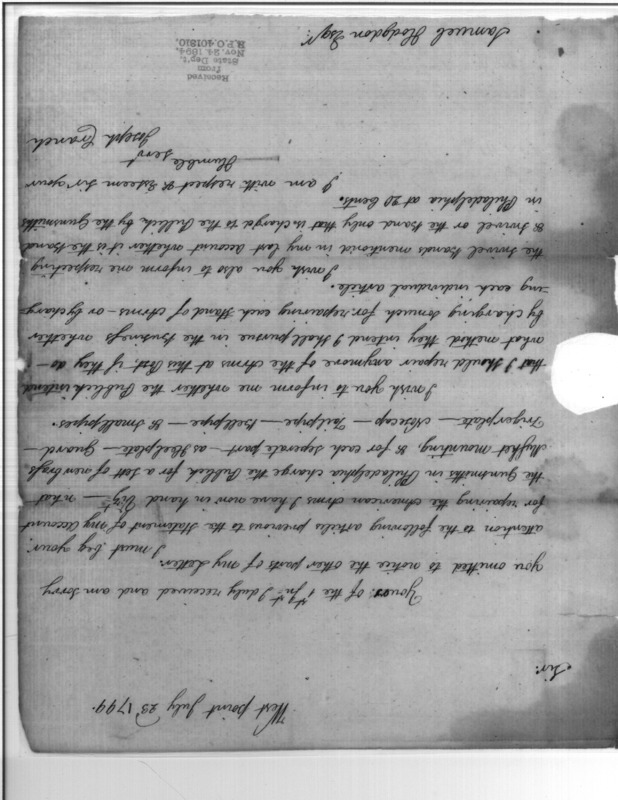 West point July 23. 1794.
Sir.
Yours of the 4th Inst. I duly received and am sorry
you omitted to notice the other parts of my Letter.
I must beg your
attention to the following articles previous to the statement of my Account
for repairing the American Arms I have now in hand Vizt. — what
the Gunsmiths in Philadelphia charge the Publick for a sett of new brass
Musket mounting, & for each separate part — as Heelplate — Guard —
Trigerplate — Nosecap — Tailpipe — Bellpipe — & Smallpipes.
I wish you to inform me whether the Publick intend
that I should repair anymore of the Arms at this Post, if they do —
what method they intend I shall pursue in the Business whether
by charging so much for repairing each stand of Arms — or by charg-
-ing each individual article.
I wish you also to inform me respecting
the swivel bands mentioned in my last account whether it is the band
& swivel or the band only that is charged to the Publick by the Gunsmiths
in Philadelphia at 20 Cents.
I am with respect & Esteem Sir your
Humble Servt
Joseph Cranch
Received
from
State Dep't,
Nov. 24, 1894.
R.P.O. 401810.
Samuel Hodgdon Esqr.